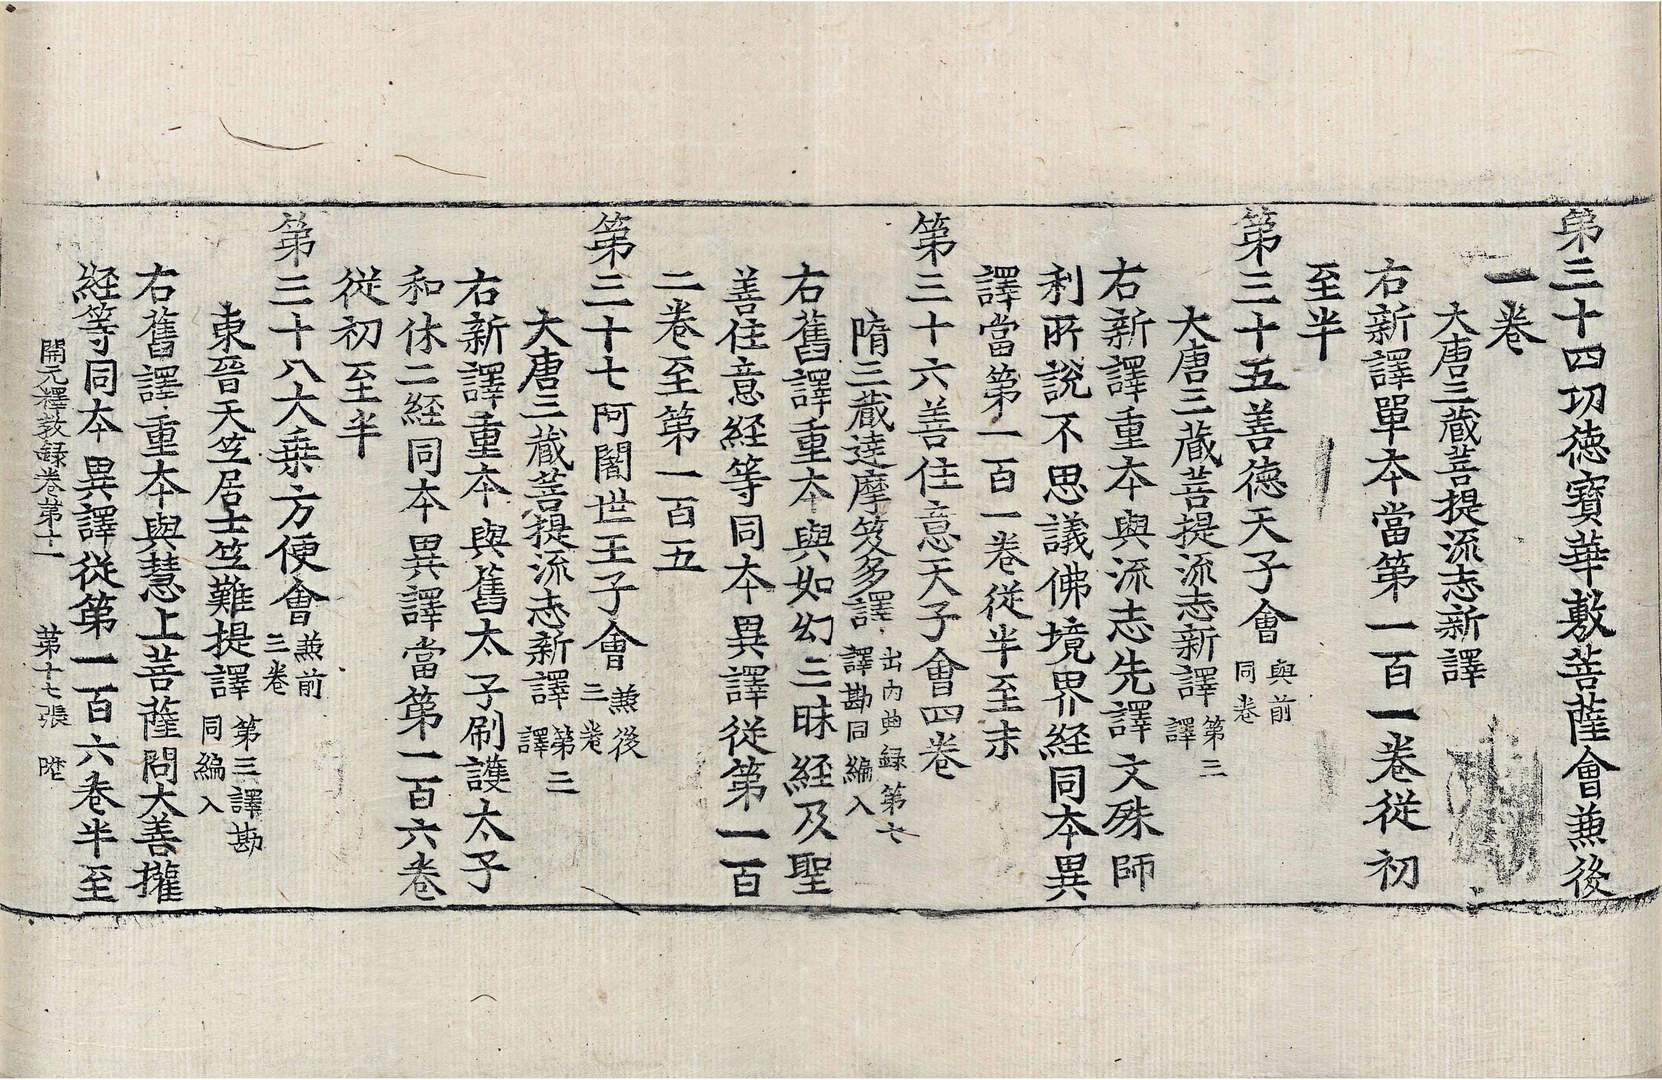 第三十四功德寶華敷菩薩會兼後
一卷
大唐三藏菩提流志新譯
右新譯單本當第一百一卷從初
至半
第三十五善德天子會與前同卷
大唐三藏菩提流志新譯第三譯
右新譯重本與流志先譯文殊師
利所說不思議佛境界經同本異
譯當第一百一卷從半至末
第三十六善住意天子會四卷
隋三藏達摩笈多譯出內典錄第六譯勘同編入
右舊譯重本與如幻三昧經及聖
善住意經等同本異譯從第一百
二卷至第一百五
第三十七阿闍世王子會兼後三卷
大唐三藏菩提流志新譯第三譯
右新譯重本與舊太子刷護太子
和休二經同本異譯當第一百六卷
從初至半
第三十八大乘方便會兼前三卷
東晉天竺居士竺難提譯第三譯勘同編入
右舊譯重本與慧上菩薩問大善權
經等同本異譯從第一百六卷半至
開元釋教錄卷第十一 第十七張